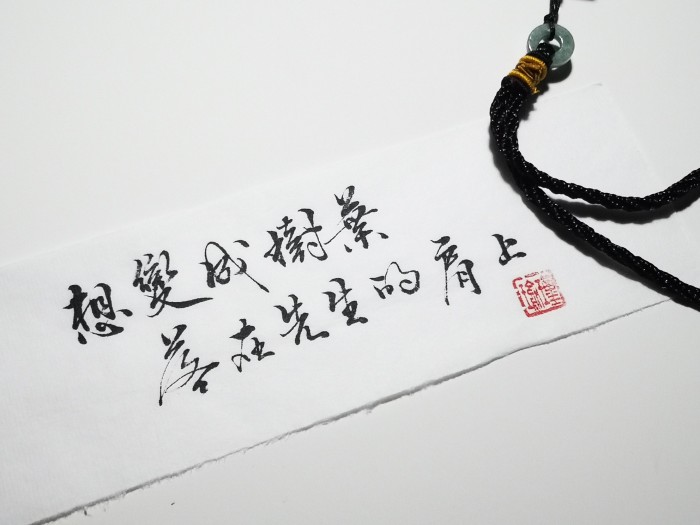 想變成樹葉
落在先生的肩上